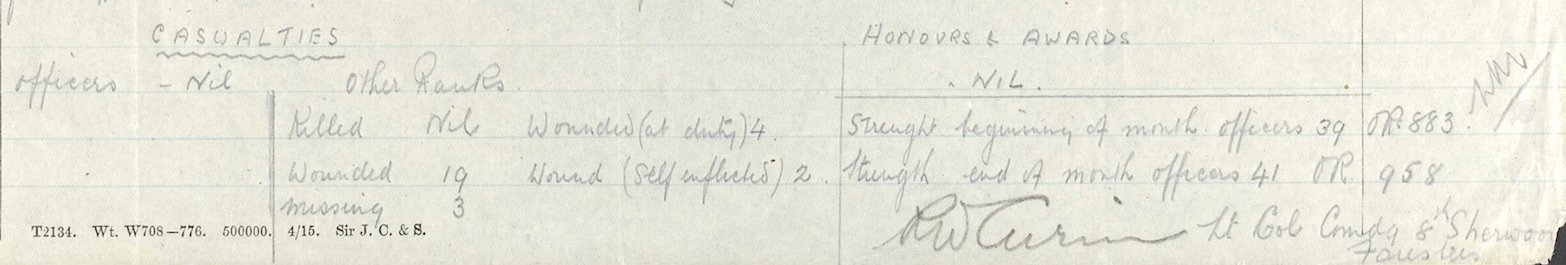 CASUALTIES
officers - Nil Other Ranks.
Killed Nil Wounded (at duty) 4.
Wounded 19 Wound (Self inflicted) 2.
missing 3
HONOURS & AWARDS
. NIL.
Strenght beginning of month officers 39 OR. 883.
Strength end of month officers 41 OR. 958
Lt Col Comdg 8th Sherwood
Foresters
T2134. Wt. W708—776. 500000. 4/15. Sir J. C. & S.